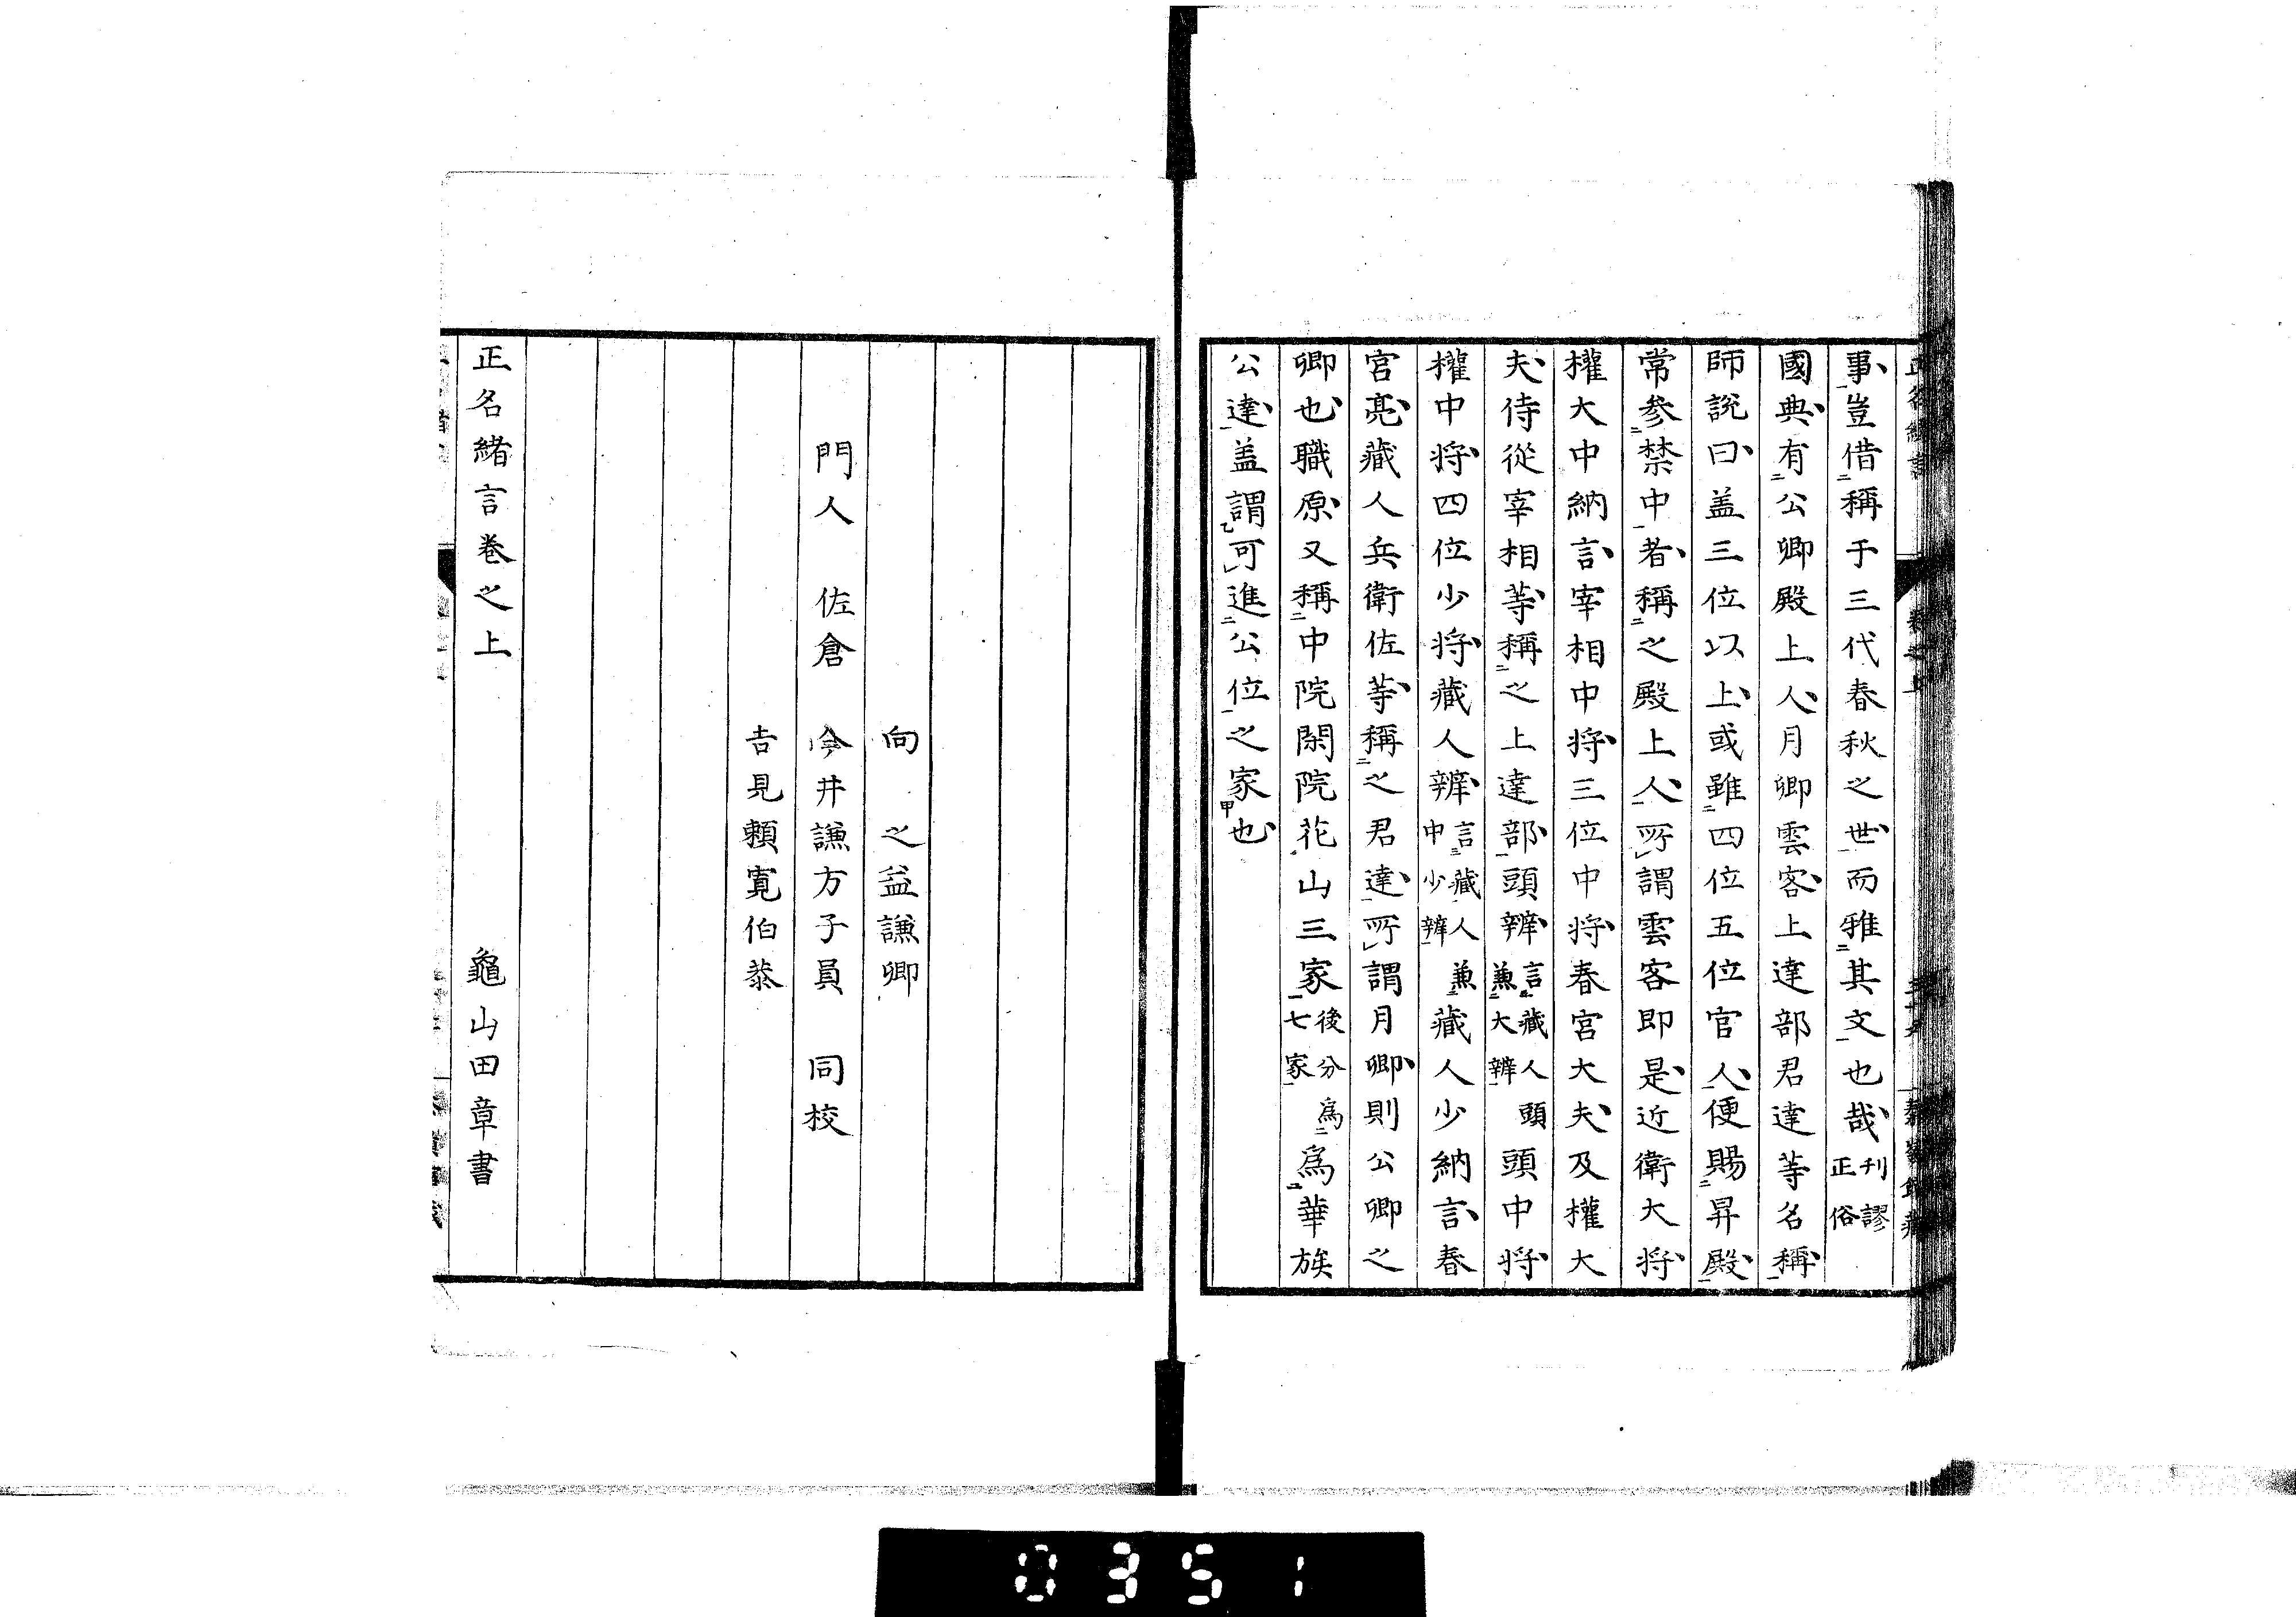 事豈借稱于三代春秋之世而雅其文也哉刊謬正俗
國典有公卿殿上人月卿雲客上達部君達等名稱
師說曰盖三位以上或雖四位五位官人便賜昇殿
常參禁中者稱之殿上人所謂雲客即是近衛大將
權大中納言宰相中將三位中將春宮大夫及權大
夫侍從宰相等稱之上達部頭辨言藏人頭兼大辨頭中將
權中將四位少將藏人辨言藏人兼中少辨藏人少納言春
宮亮藏人兵衛佐等稱之君達所謂月卿則公卿之
卿也職原又稱中院閑院花山三家後分爲七家爲華族
公達盖謂可進公位之家也
向之益謙卿
門人 佐倉 今井謙方子員 同校
吉見賴寬伯恭
正名緒言卷之上 龜山田章書
0351